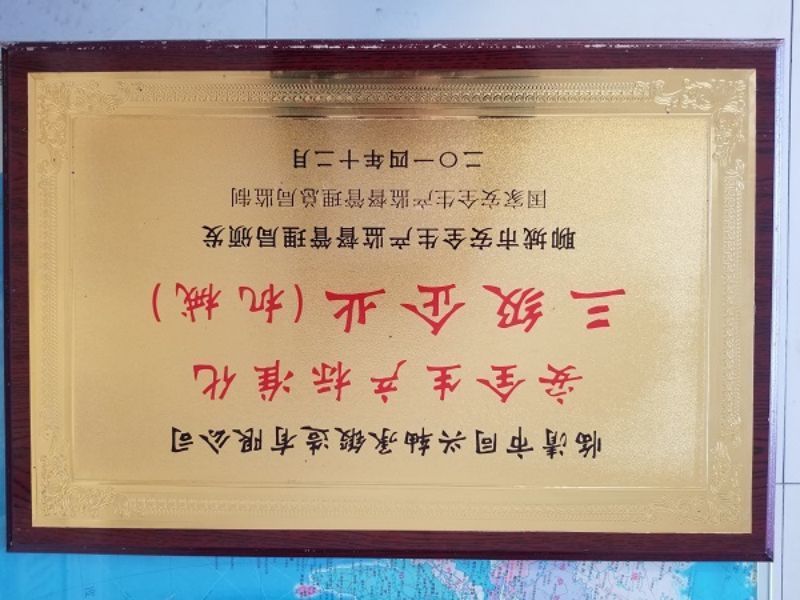 临清市同兴轴承锻造有限公司
安全生产标准化
三级企业（机械）
聊城市安全生产监督管理局颁发
国家安全生产监督管理总局监制
二〇一四年十二月